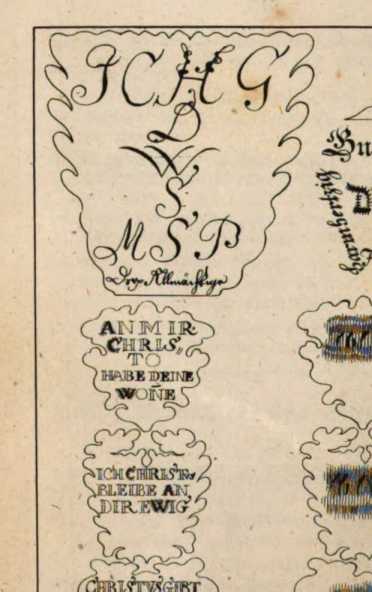 ICHG
D
W
S
MSP
Der Allmächtige
AN MIR
CHRIS,
TO
HABE DEINE
WOÑE
ICH CHRISTus
BLEIBE AN
DIR EWIG
CHRISTVS GIBT
Barmhertzig